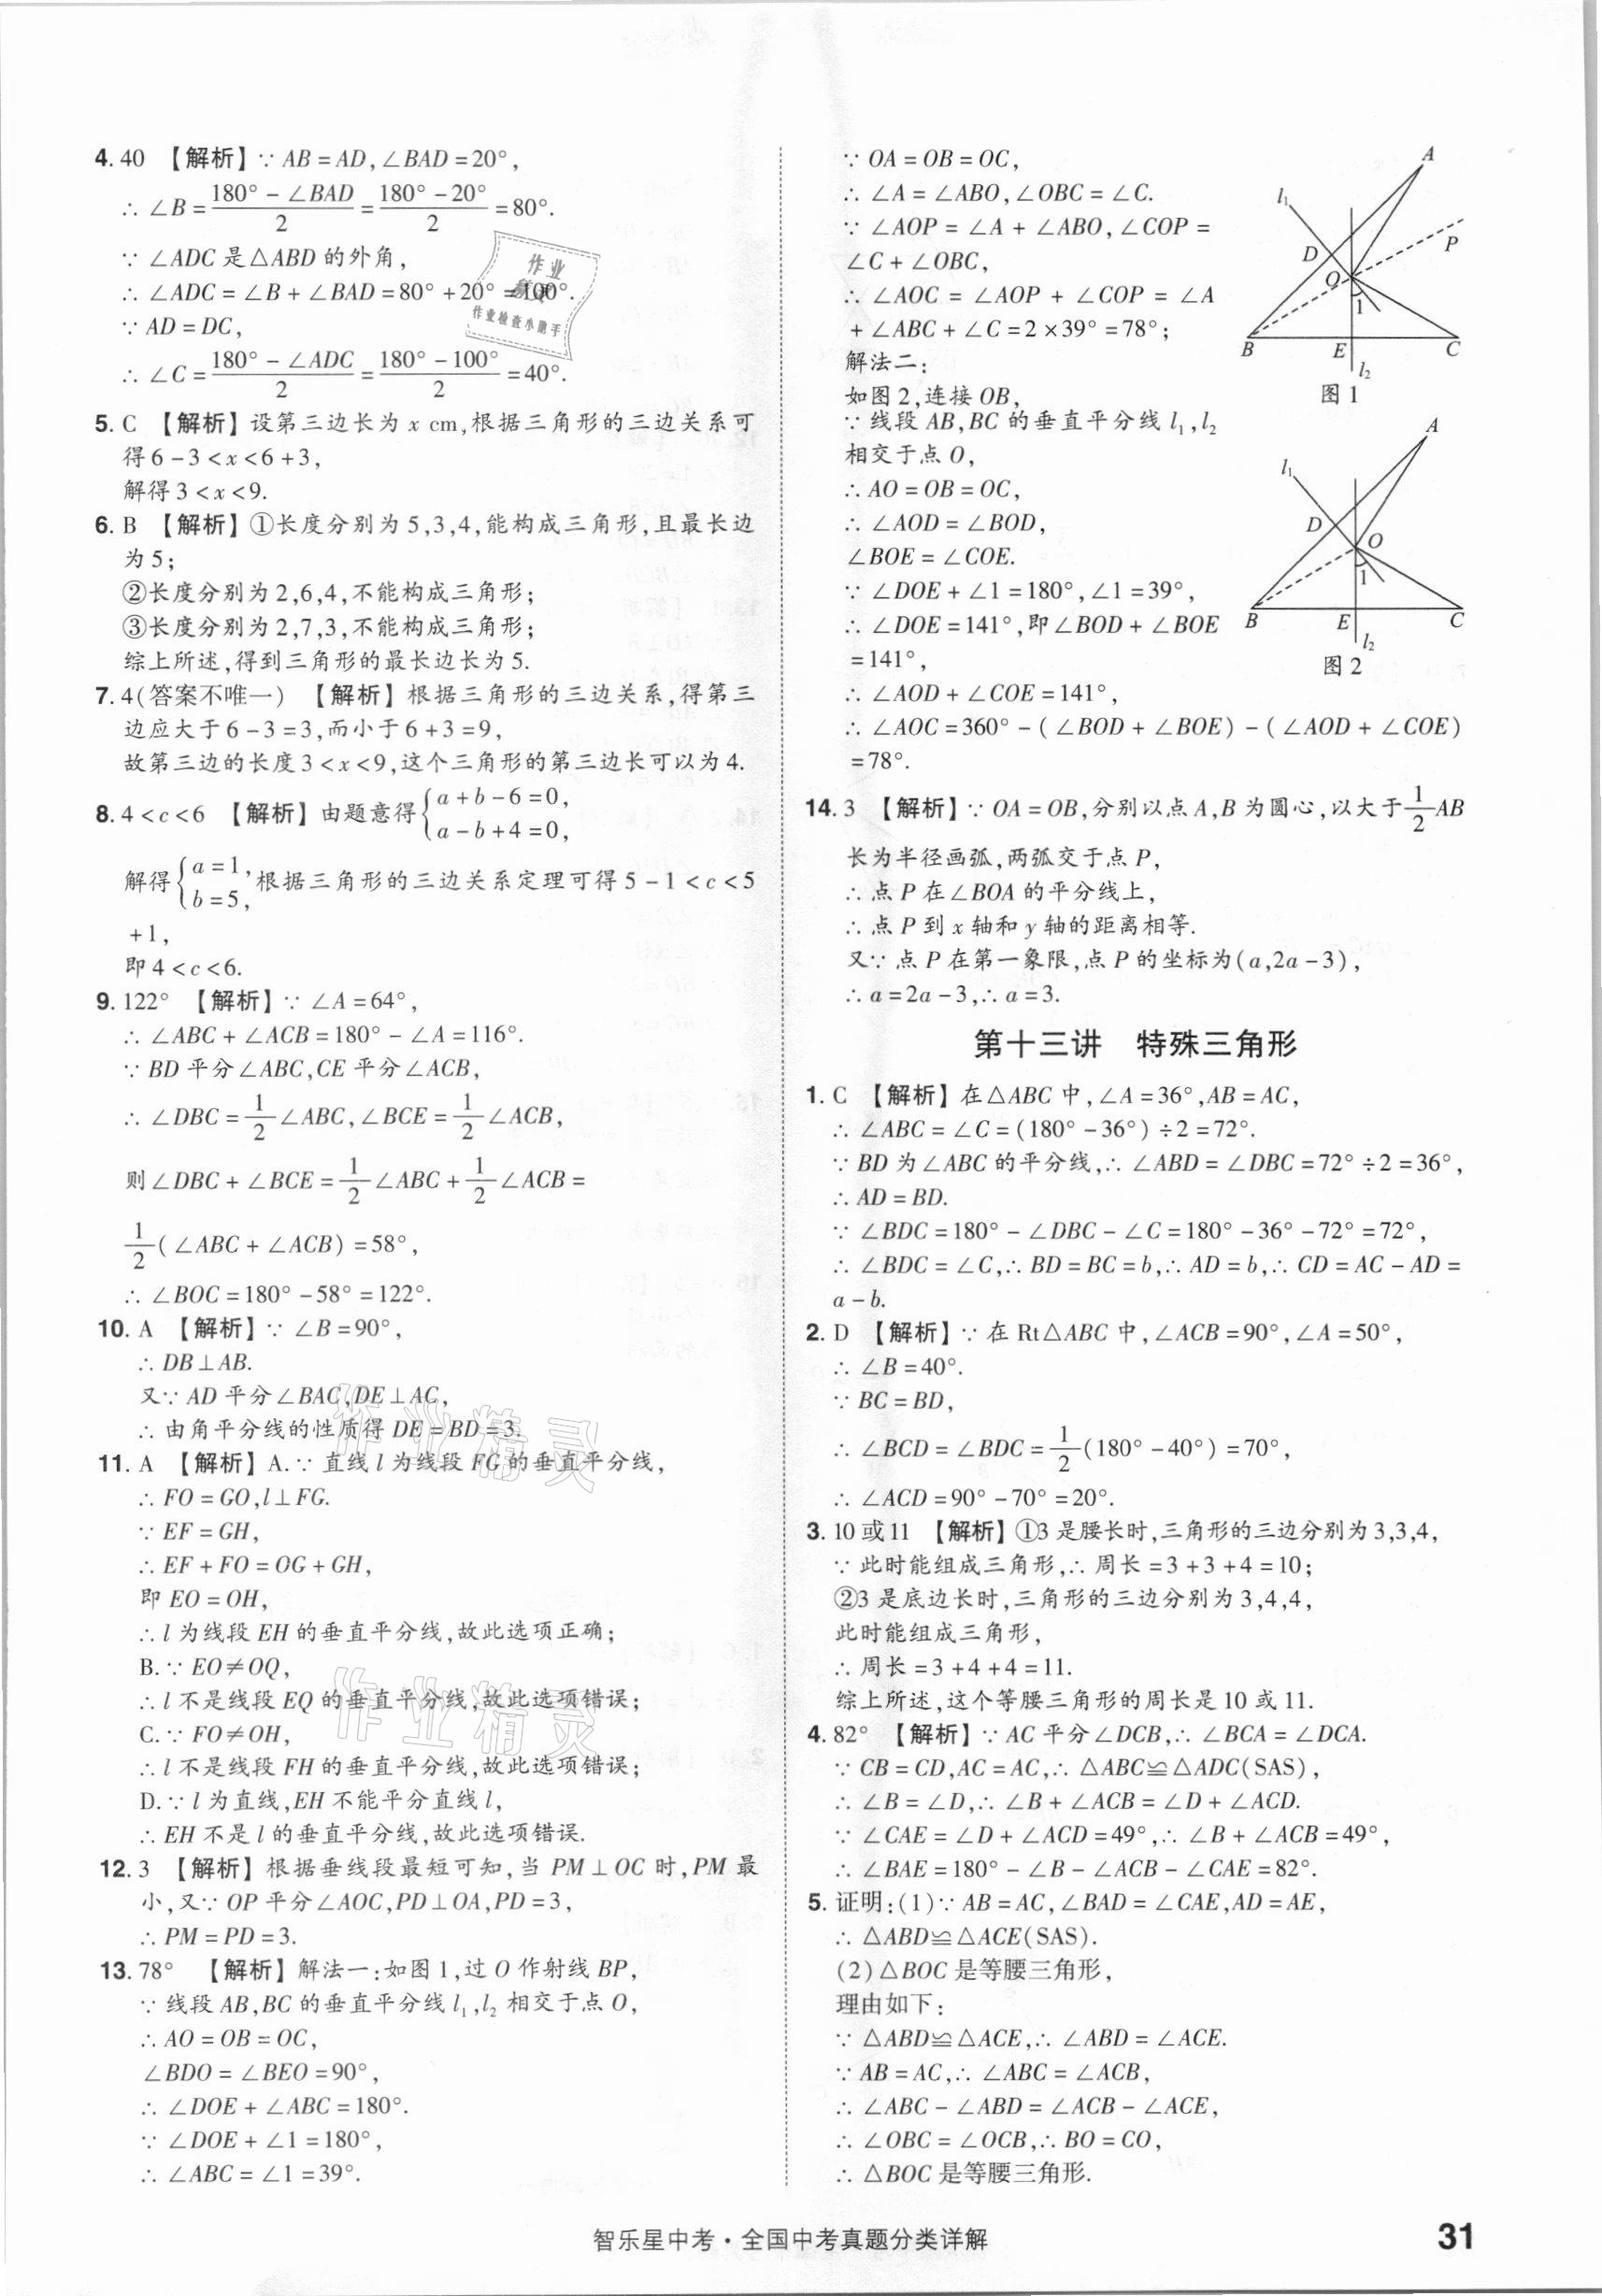 4. 40 【解析】∵ AB = AD, ∠BAD = 20°,
∴ ∠B = (180° - ∠BAD)/2 = (180° - 20°)/2 = 80°.
∵ ∠ADC 是△ABD 的外角,
∴ ∠ADC = ∠B + ∠BAD = 80° + 20° = 100°.
∵ AD = DC,
∴ ∠C = (180° - ∠ADC)/2 = (180° - 100°)/2 = 40°.
5. C 【解析】设第三边长为 x cm,根据三角形的三边关系可
得 6 - 3 < x < 6 + 3,
解得 3 < x < 9.
6. B 【解析】①长度分别为 5,3,4,能构成三角形,且最长边
为 5;
②长度分别为 2,6,4,不能构成三角形;
③长度分别为 2,7,3,不能构成三角形;
综上所述,得到三角形的最长边长为 5.
7. 4(答案不唯一) 【解析】根据三角形的三边关系,得第三
边应大于 6 - 3 = 3,而小于 6 + 3 = 9,
故第三边的长度 3 < x < 9,这个三角形的第三边长可以为 4.
8. 4 < c < 6 【解析】由题意得{a + b - 6 = 0,
a - b + 4 = 0,
解得{a = 1,
b = 5,根据三角形的三边关系定理可得 5 - 1 < c < 5
+ 1,
即 4 < c < 6.
9. 122° 【解析】∵ ∠A = 64°,
∴ ∠ABC + ∠ACB = 180° - ∠A = 116°.
∵ BD 平分∠ABC,CE 平分∠ACB,
∴ ∠DBC = 1/2 ∠ABC, ∠BCE = 1/2 ∠ACB,
则∠DBC + ∠BCE = 1/2 ∠ABC + 1/2 ∠ACB =
1/2 (∠ABC + ∠ACB) = 58°,
∴ ∠BOC = 180° - 58° = 122°.
10. A 【解析】∵ ∠B = 90°,
∴ DB⊥AB.
又∵ AD 平分∠BAC,DE⊥AC,
∴ 由角平分线的性质得 DE = BD = 3.
11. A 【解析】A.∵ 直线 l 为线段 FG 的垂直平分线,
∴ FO = GO,l⊥FG.
∵ EF = GH,
∴ EF + FO = OG + GH,
即 EO = OH,
∴ l 为线段 EH 的垂直平分线,故此选项正确;
B.∵ EO≠OQ,
∴ l 不是线段 EQ 的垂直平分线,故此选项错误;
C.∵ FO≠OH,
∴ l 不是线段 FH 的垂直平分线,故此选项错误;
D.∵ l 为直线,EH 不能平分直线 l,
∴ EH 不是 l 的垂直平分线,故此选项错误.
12. 3 【解析】根据垂线段最短可知,当 PM⊥OC 时,PM 最
小,又∵ OP 平分∠AOC,PD⊥OA,PD = 3,
∴ PM = PD = 3.
13. 78° 【解析】解法一:如图 1,过 O 作射线 BP,
∵ 线段 AB,BC 的垂直平分线 l₁,l₂ 相交于点 O,
∴ AO = OB = OC,
∠BDO = ∠BEO = 90°,
∴ ∠DOE + ∠ABC = 180°.
∵ ∠DOE + ∠1 = 180°,
∴ ∠ABC = ∠1 = 39°.
∵ OA = OB = OC,
∴ ∠A = ∠ABO, ∠OBC = ∠C.
∵ ∠AOP = ∠A + ∠ABO, ∠COP =
∠C + ∠OBC,
∴ ∠AOC = ∠AOP + ∠COP = ∠A
+ ∠ABC + ∠C = 2 × 39° = 78°;
解法二:
如图 2,连接 OB,
∵ 线段 AB,BC 的垂直平分线 l₁,l₂
相交于点 O,
∴ AO = OB = OC,
∴ ∠AOD = ∠BOD,
∠BOE = ∠COE.
∵ ∠DOE + ∠1 = 180°, ∠1 = 39°,
∴ ∠DOE = 141°,即∠BOD + ∠BOE
= 141°,
∴ ∠AOD + ∠COE = 141°,
∴ ∠AOC = 360° - (∠BOD + ∠BOE) - (∠AOD + ∠COE)
= 78°.
A
l₁
P
D
O
1
B E C
l₂
图 1
A
l₁
D
O
1
B E C
l₂
图 2
14. 3 【解析】∵ OA = OB,分别以点 A,B 为圆心,以大于 1/2 AB
长为半径画弧,两弧交于点 P,
∴ 点 P 在∠BOA 的平分线上,
∴ 点 P 到 x 轴和 y 轴的距离相等.
又∵ 点 P 在第一象限,点 P 的坐标为(a,2a - 3),
∴ a = 2a - 3,∴ a = 3.
第十三讲 特殊三角形
1. C 【解析】在△ABC 中,∠A = 36°,AB = AC,
∴ ∠ABC = ∠C = (180° - 36°) ÷ 2 = 72°.
∵ BD 为∠ABC 的平分线,∴ ∠ABD = ∠DBC = 72° ÷ 2 = 36°,
∴ AD = BD.
∵ ∠BDC = 180° - ∠DBC - ∠C = 180° - 36° - 72° = 72°,
∴ ∠BDC = ∠C,∴ BD = BC = b,∴ AD = b,∴ CD = AC - AD =
a - b.
2. D 【解析】∵ 在 Rt△ABC 中,∠ACB = 90°,∠A = 50°,
∴ ∠B = 40°.
∵ BC = BD,
∴ ∠BCD = ∠BDC = 1/2 (180° - 40°) = 70°,
∴ ∠ACD = 90° - 70° = 20°.
3. 10 或 11 【解析】①3 是腰长时,三角形的三边分别为 3,3,4,
∵ 此时能组成三角形,∴ 周长 = 3 + 3 + 4 = 10;
②3 是底边长时,三角形的三边分别为 3,4,4,
此时能组成三角形,
∴ 周长 = 3 + 4 + 4 = 11.
综上所述,这个等腰三角形的周长是 10 或 11.
4. 82° 【解析】∵ AC 平分∠DCB,∴ ∠BCA = ∠DCA.
∵ CB = CD,AC = AC,∴ △ABC≌△ADC(SAS),
∴ ∠B = ∠D,∴ ∠B + ∠ACB = ∠D + ∠ACD.
∵ ∠CAE = ∠D + ∠ACD = 49°,∴ ∠B + ∠ACB = 49°,
∴ ∠BAE = 180° - ∠B - ∠ACB - ∠CAE = 82°.
5. 证明:(1)∵ AB = AC,∠BAD = ∠CAE,AD = AE,
∴ △ABD≌△ACE(SAS).
(2)△BOC 是等腰三角形,
理由如下:
∵ △ABD≌△ACE,∴ ∠ABD = ∠ACE.
∵ AB = AC,∴ ∠ABC = ∠ACB,
∴ ∠ABC - ∠ABD = ∠ACB - ∠ACE,
∴ ∠OBC = ∠OCB,∴ BO = CO,
∴ △BOC 是等腰三角形.
智乐星中考·全国中考真题分类详解
31
作业
作业检查小助手
作业精灵
作业精灵